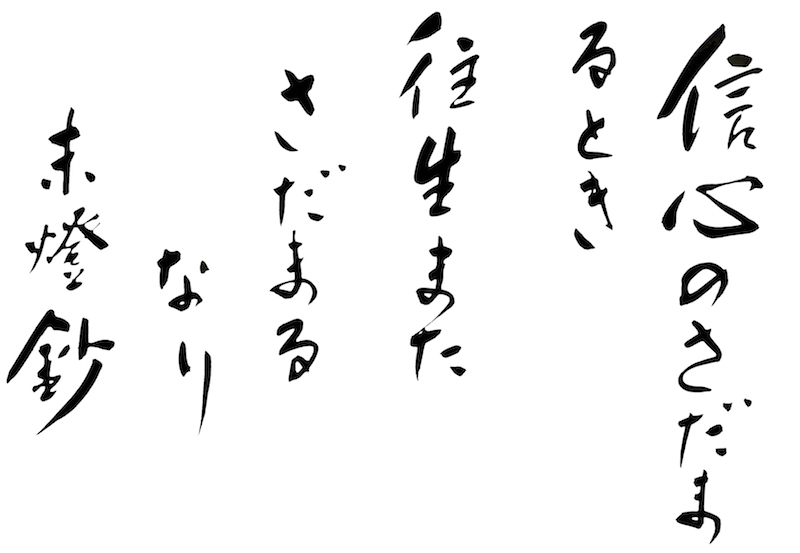 信心のさだま
るとき
往生また
さだまる
なり
末燈鈔